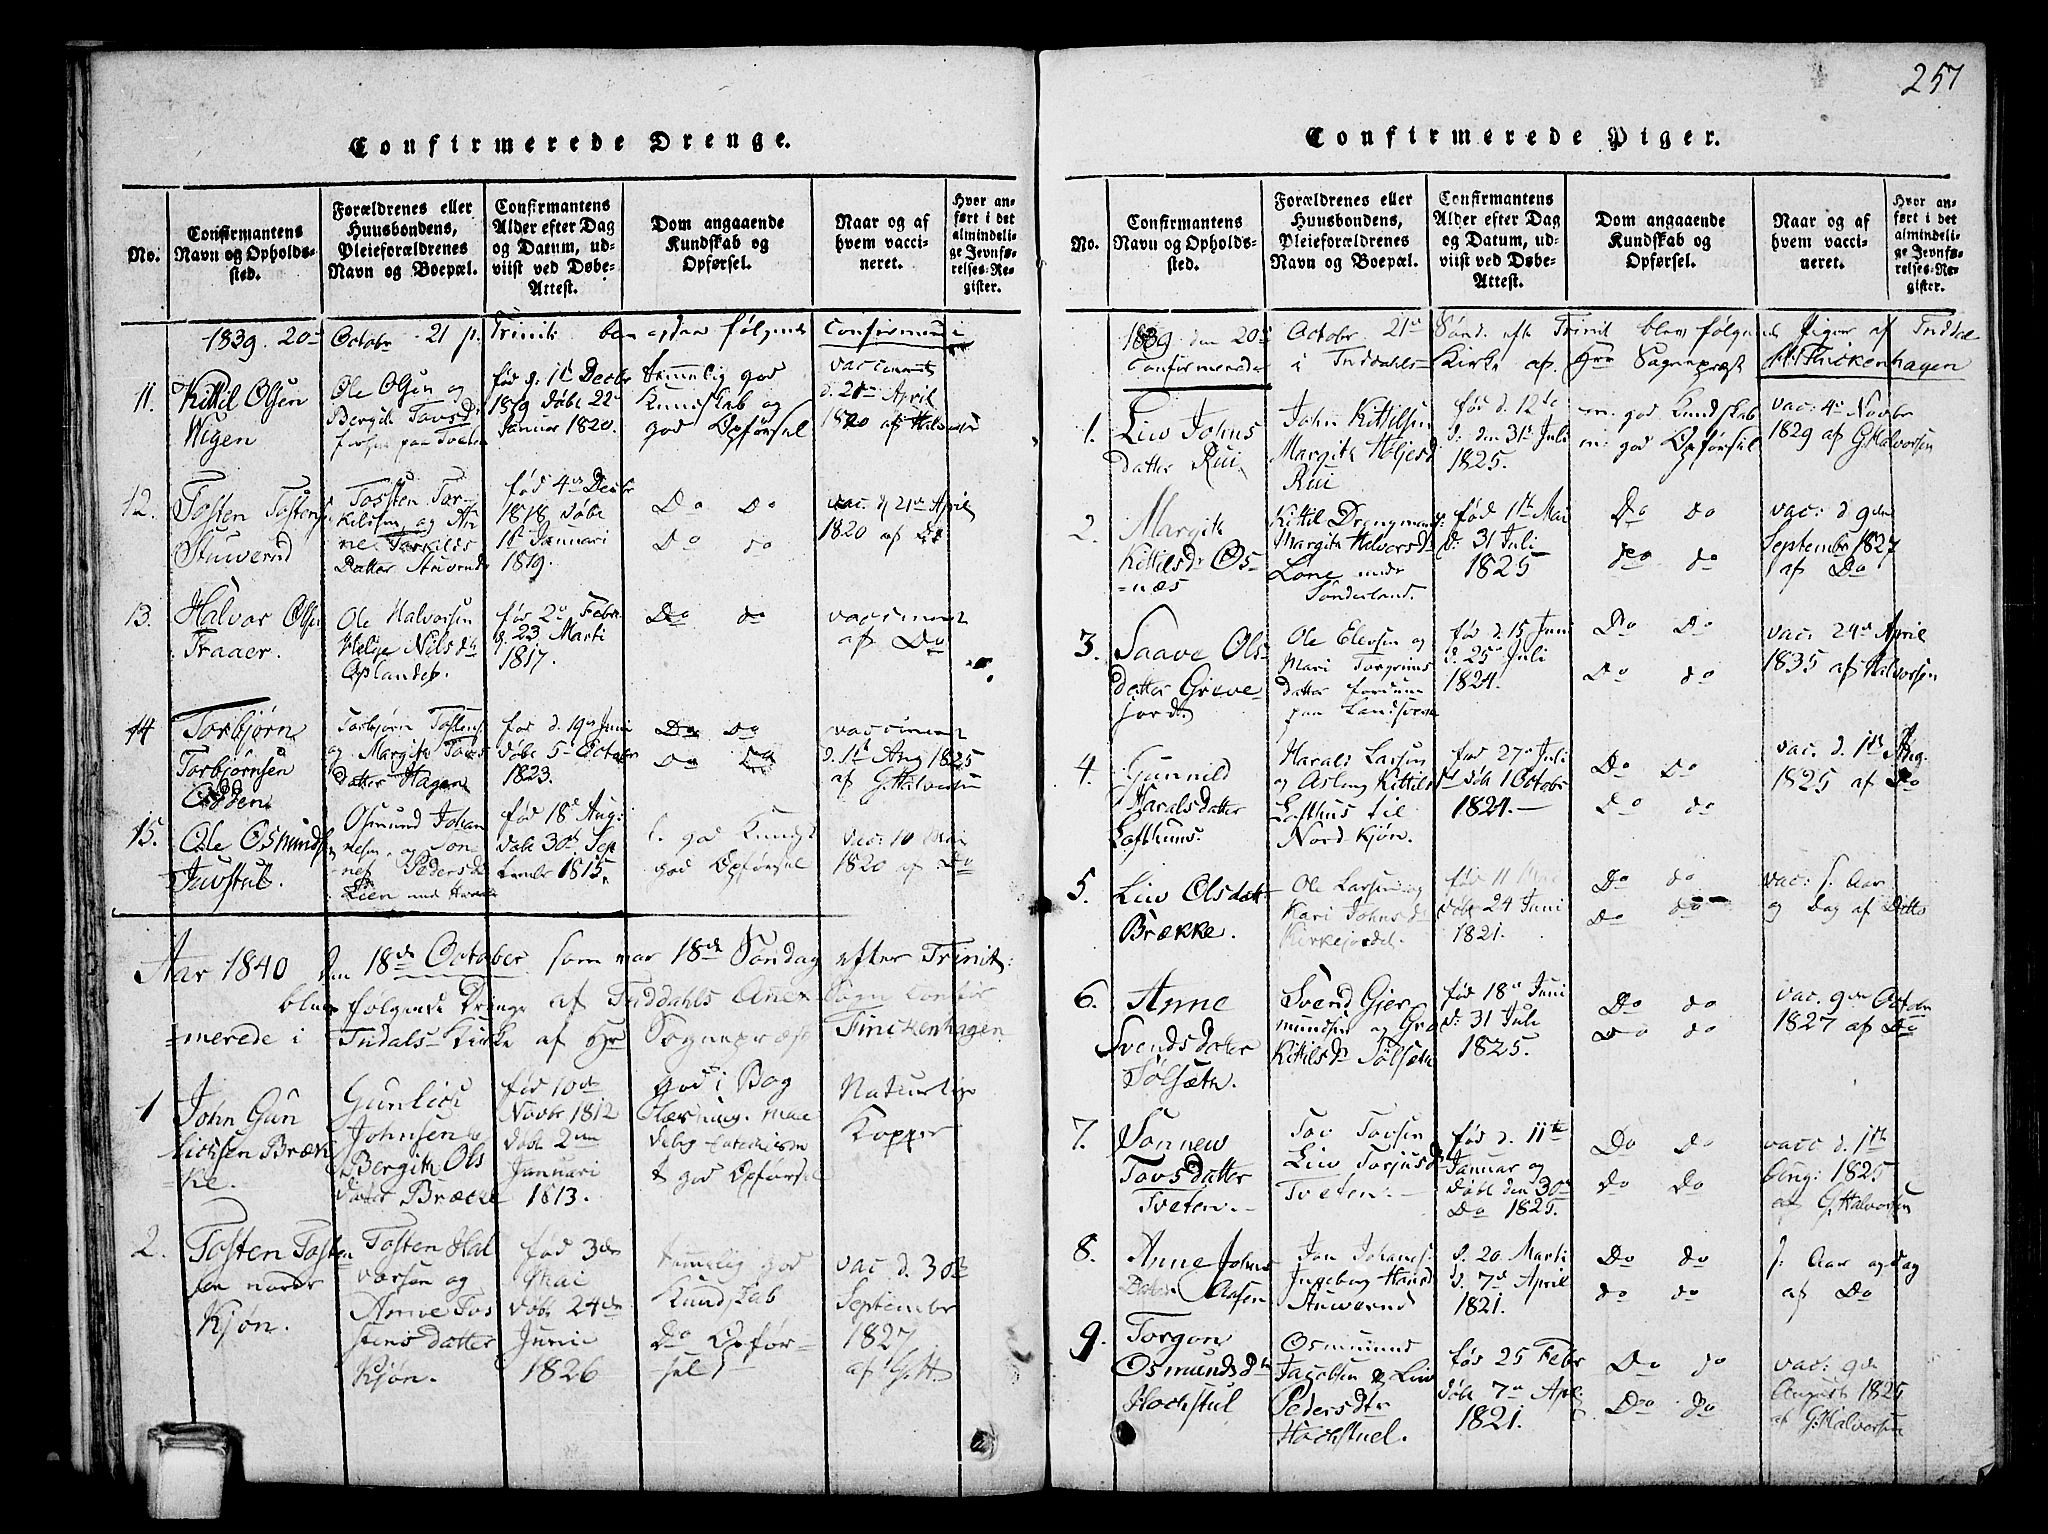 257
Confirmerede Drenge.
No.
Confirmantens Navn og Opholdssted.
Forældrenes eller Huusbondens, Pleieforældrenes Navn og Boepæl.
Confirmantens Alder efter Dag og Datum, udviist ved Døbe-Attest.
Dom angaaende Kundskab og Opførsel.
Naar og af hvem vaccineret.
Hvor anført i det almindelige Jevnførelses-Register.
1839. 20de October 21 p. Trinit følgende Confirmeret
11.
Kittil Olsen
Wigen
Ole Olsen og
Bergit Tovsd
paa Tveten
fød d. 11t Decbr
1819 døbt 22
Januar 1820.
temmelig god
Kundskab og
god Opførsel
vaccineret
d. 21de April
1820 af Halvors
12.
Tosten Tostens
Stuverud
Tosten Tor-
kilsen og An-
ne Torkilds
Datter Stuverud
fød 4de Decbr
1818 døbt
16 Januari
1819.
Do Do
Do do
vac. d 21de April
1820 af
13.
Halvor Olsen
Traaer.
Ole Halvorsen
Helge Nilsdtr
Oplandep.
fød 2 Febr
d. 23 Marti
1817.
Do do
vaccineret
af Do
14
Torbjørn
Torbjørnsen
Odden
Torbjørn Tostens
og Margith Tovs
datter Hagen
fød d. 19de Juni
døbt 5 October
1823.
Do do
Do Do
vaccineret
d. 11t Aug 1825
af G Halvorsen
15.
Ole Osmundsen
Juvstul.
Osmund Johan
nesen og
Pedersd
Lien
fød 18d Aug:
døbt 30t Sep
tember 1815.
t. god Kundsk
god Opførsel
vac: 10 Mai
1820 af Do
Aar 1840 den 18de October som var 18de Søndag efter Trinit:
blev følgende Drenge af Tuddahls Anex Sogn Confir
merede i Tudals Kirke af Hr Sogneprest Finckenhagen
1
John Gun
licksen Bræk
ke.
Gunlick
Johnsen
Bergith Ols
datter Brække
fød 10de
Novbr 1812
døbt 2den
Januari
1813.
god i Bog
Læsning. maa
delig
t god Opførsel
Naturlige
Kopper
2.
Tosten Tosten
sen nordr
Kjøn.
Tosten Hal
vorsen og
Anne Tos
tensdatter
Kjøn.
fød 3de
Mai
døbt 24de
Junii
1826
temmelig god
Kundskab
Do Opfør-
sel
vac d. 30te
September
1827
af G. H.
Confirmerede Piger.
No.
Confirmantens Navn og Opholdssted.
Forældrenes eller Huusbondens, Pleieforældrenes Navn og Boepæl.
Confirmantens Alder efter Dag og Datum, udviist ved Døbe-Attest.
Dom angaaende Kundskab og Opførsel.
Naar og af hvem vaccineret.
Hvor anført i det almindelige Jevnførelses-Register.
1839 den 20de October 21de Sønd. efter Trinit blev følgende Piger af Tuddal
Confirmerede i Tuddahls Kirke af Herr Sogneprest M. Finckenhagen
1.
Liv Johns
datter Rui
John Kittilsen
Margith Høljesd
Rui
fød d. 12te
d: den 31te Juli
1825.
m: god Kundskab
m: god Opførsel
vac: 4de Novbr
1829 af G Halvorsen
2.
Margith
Kittilsdr Os-
næs
Kittil Drengman
Margith Halvorsdr
Lone
Sønderland.
fød 11te Mai
d: 31 Juli
1825
Do do
do do
vac: d 9de
September 1827
af Do
3.
Saave Ols
datter Greve
jord.
Ole Elevsen og
Mari Torgrims
datter fordum
paa Landsverk
fød d. 15 Juni
d. 25 Juli
1824.
Do Do
Do do
vac: 24de April
1835 af Halvorsen
4.
Gunnild
Haralsdatter
Lofthuus.
Harald Larsen
og Aslaug Kittils
Lofthus til
Nord Kjøn.
fød 27de Juli
døbt 1 Octobr
1824.
Do Do
Do do
vac: d. 1te Aug.
1825 af Do
5.
Liv Olsdatt
Brække.
Ole Larsen og
Kari Johnsd
Kirkejordet.
fød 11 Mai
døbt 24 Juni
1821.
Do do
Do do
vac: s. Aar
og Dag af Ditto
6.
Anne
Svendsdatter
Sølsæth.
Svend Gjer
mundsen og Gro
Kittilsdr Sølsæth
fød 18de Juni
d: 31 Juli
1825.
Do do
Do do
vac. 9de October
1827 af Do
7.
Sonnew
Tovsdatter
Tveten.
Tov Tovsen
Liv Torjusd
Tveten.
fød d. 11te
Januar og
døbt den 30te
Do 1825.
Do Do
do Do
vacc d. 1te
Aug: 1825
af G. Halvorsen
8.
Anne Johns
Datter Aasen
Jon Johans
Ingeborg Hansd
Stuverud
d. 20 Marti
d. 7de April
1821.
Do do
do do
s. Aar og dag
af Do
9.
Torgon
Osmundsdtr
Hochstul
Osmund
Jacobsen & Liv
Pedersdtr
Hochstuel.
fød 25 Febr
døbt 7de Apl
1821.
Do do
Do do
vac: 9de
August 1825
af G. Halvorsen